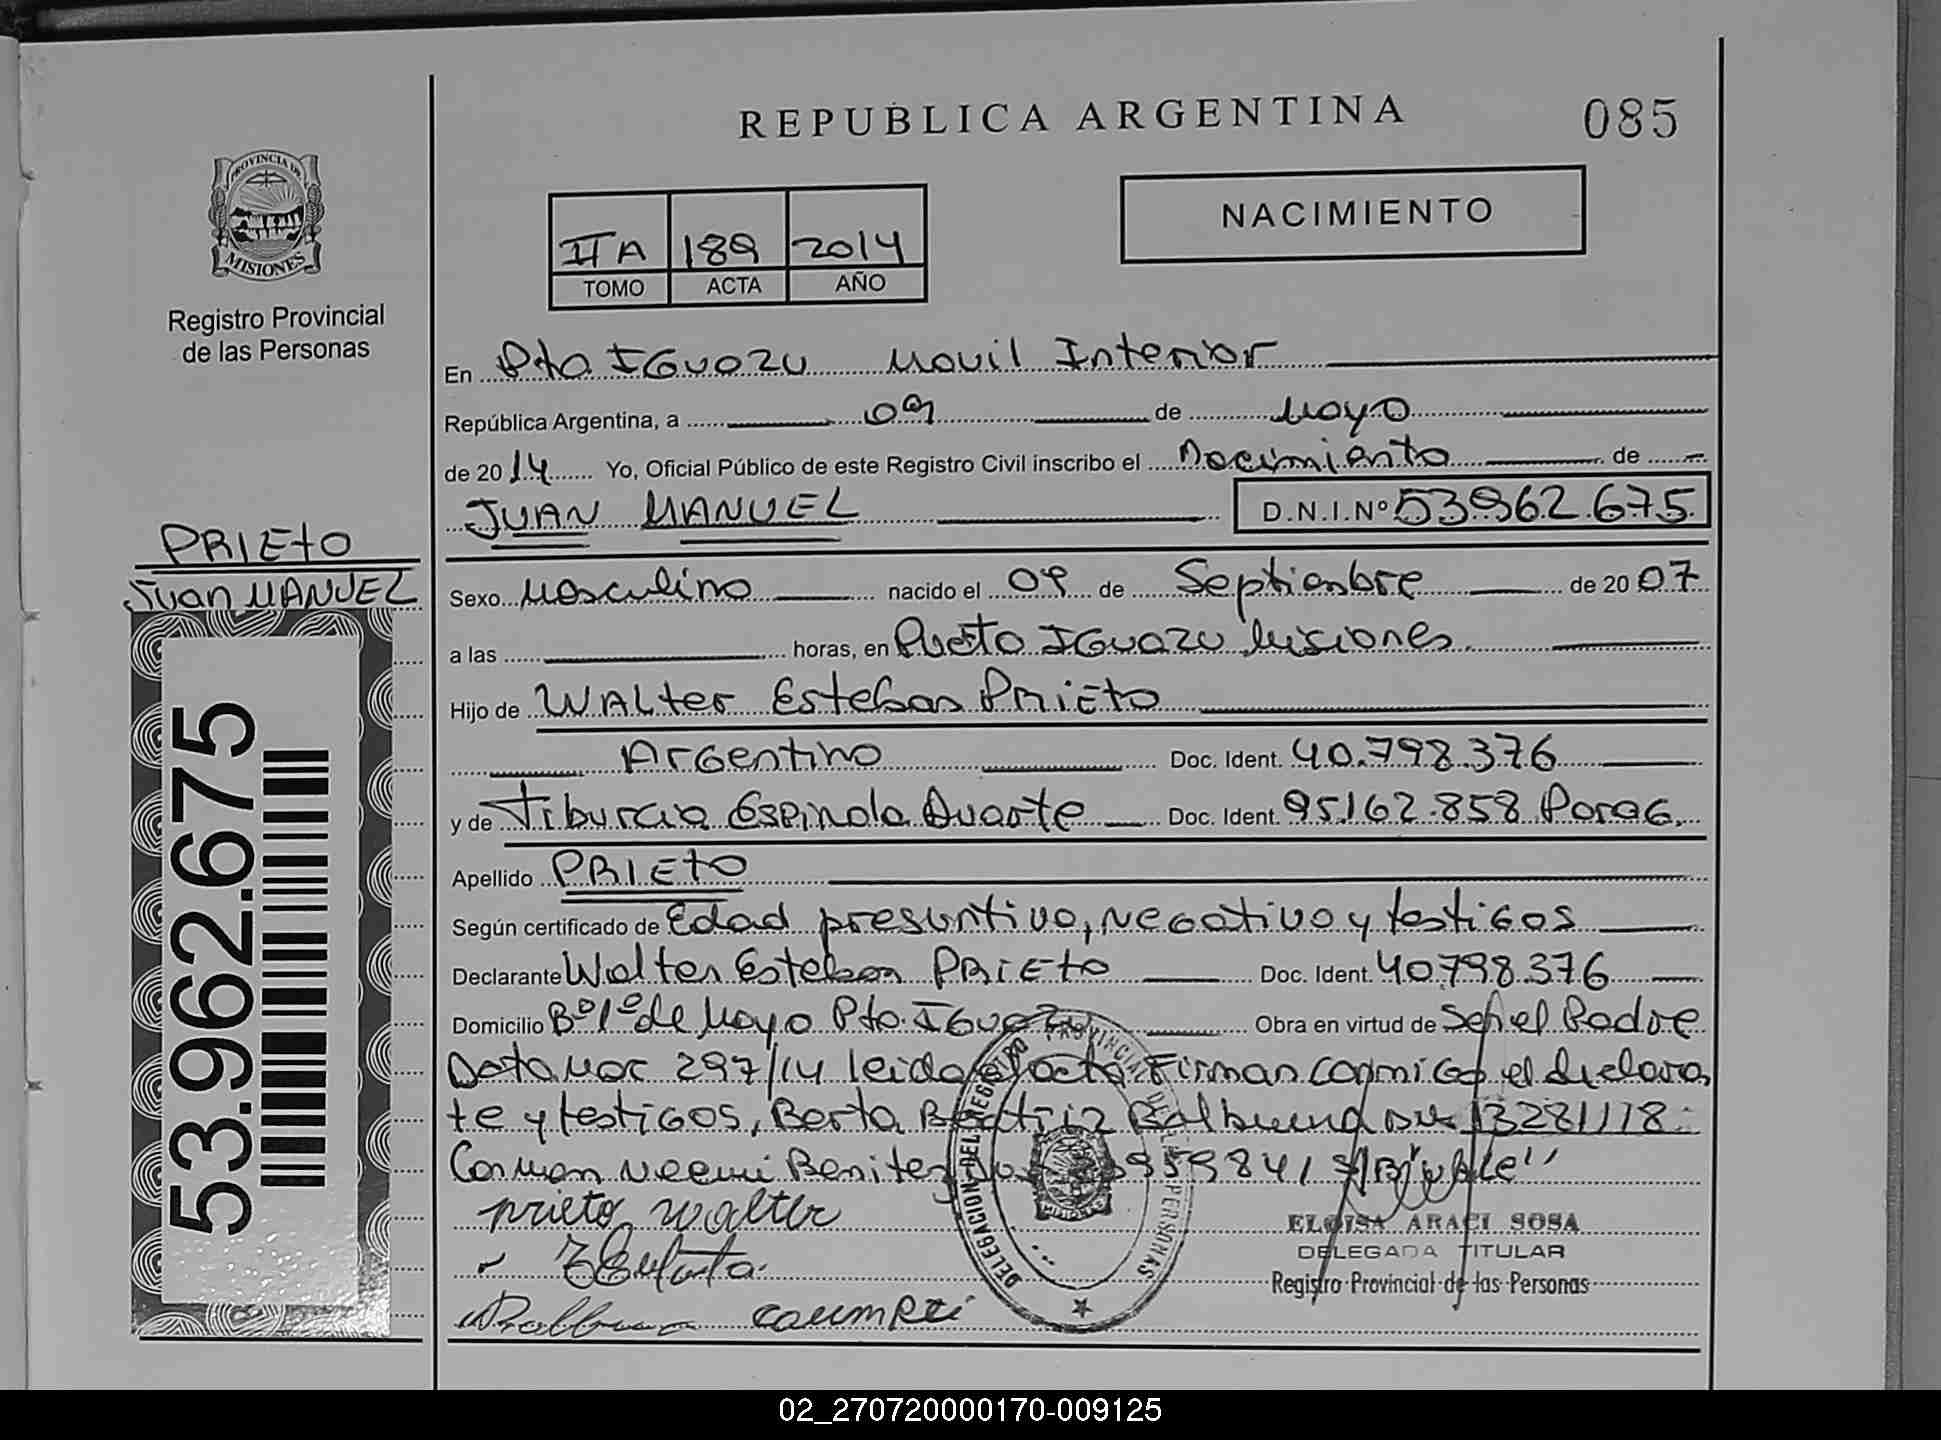 REPUBLICA ARGENTINA
085
PROVINCIA DE
MISIONES
Registro Provincial
de las Personas
NACIMIENTO
IIA 189 2014
TOMO ACTA AÑO
En Pto IGuazu Movil Interior
República Argentina, a 09 de Mayo
de 2014 Yo, Oficial Público de este Registro Civil inscribo el Nacimiento de
JUAN MANUEL D.N.I.Nº 53962.675
PRIEtO
Juan MANUEL
53.962.675
Sexo Masculino nacido el 09 de Septiembre de 2007
a las horas, en Puerto IGuazu Misiones
Hijo de WALter Esteban PRiEto
ArGentino Doc. Ident. 40.798.376
y de Tiburcia Espinola Duarte Doc. Ident. 95162.858 ParaG.
Apellido PRIEto
Según certificado de Edad presuntivo, negativo y testiGos
Declarante Walter Esteban PRIEto Doc. Ident. 40798.376
Domicilio Bº 1º de Mayo Pto. IGuazu Obra en virtud de Ser el Padre
Data 297/14 leida el acta Firman conmiGo el declaran
te y testiGos, Berta Beatriz Balbuena DNI 13281118
Carman Neemi Benitez
prieto walter
DELEGACION DEL REGISTRO PROVINCIAL DE LAS PERSONAS
ELOISA ARACI SOSA
DELEGADA TITULAR
Registro Provincial de las Personas
02_270720000170-009125